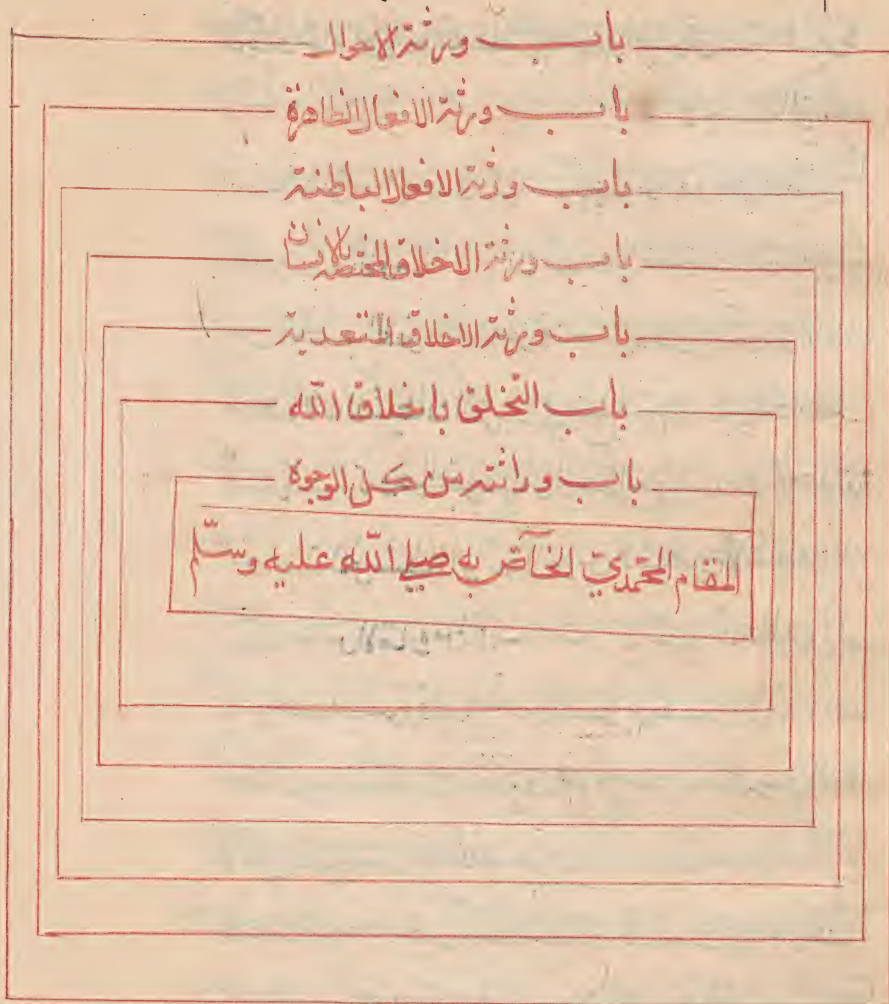 باب ورثة الاحوال
باب ورثة الافعال الظاهرة
باب ورثة الافعال الباطنة
باب ورثة الاخلاق المختصه بالانسان
باب ورثة الاخلاق المتعدية
باب التخلق باخلاق الله
باب وراثته من كل الوجوه
المقام المحمدي الخاص به صلى الله عليه وسلم